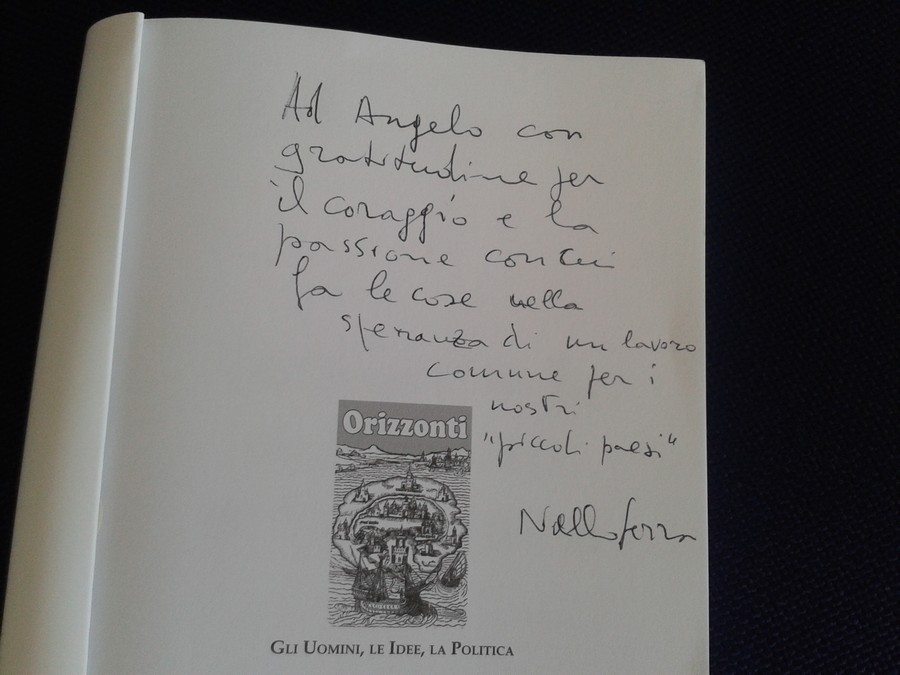 Ad Angelo con
gratitudine per
il coraggio e la
passione con cui
fa le cose nella
speranza di un lavoro
comune per i
nostri
"piccoli paesi"
Orizzonti
GLI UOMINI, LE IDEE, LA POLITICA